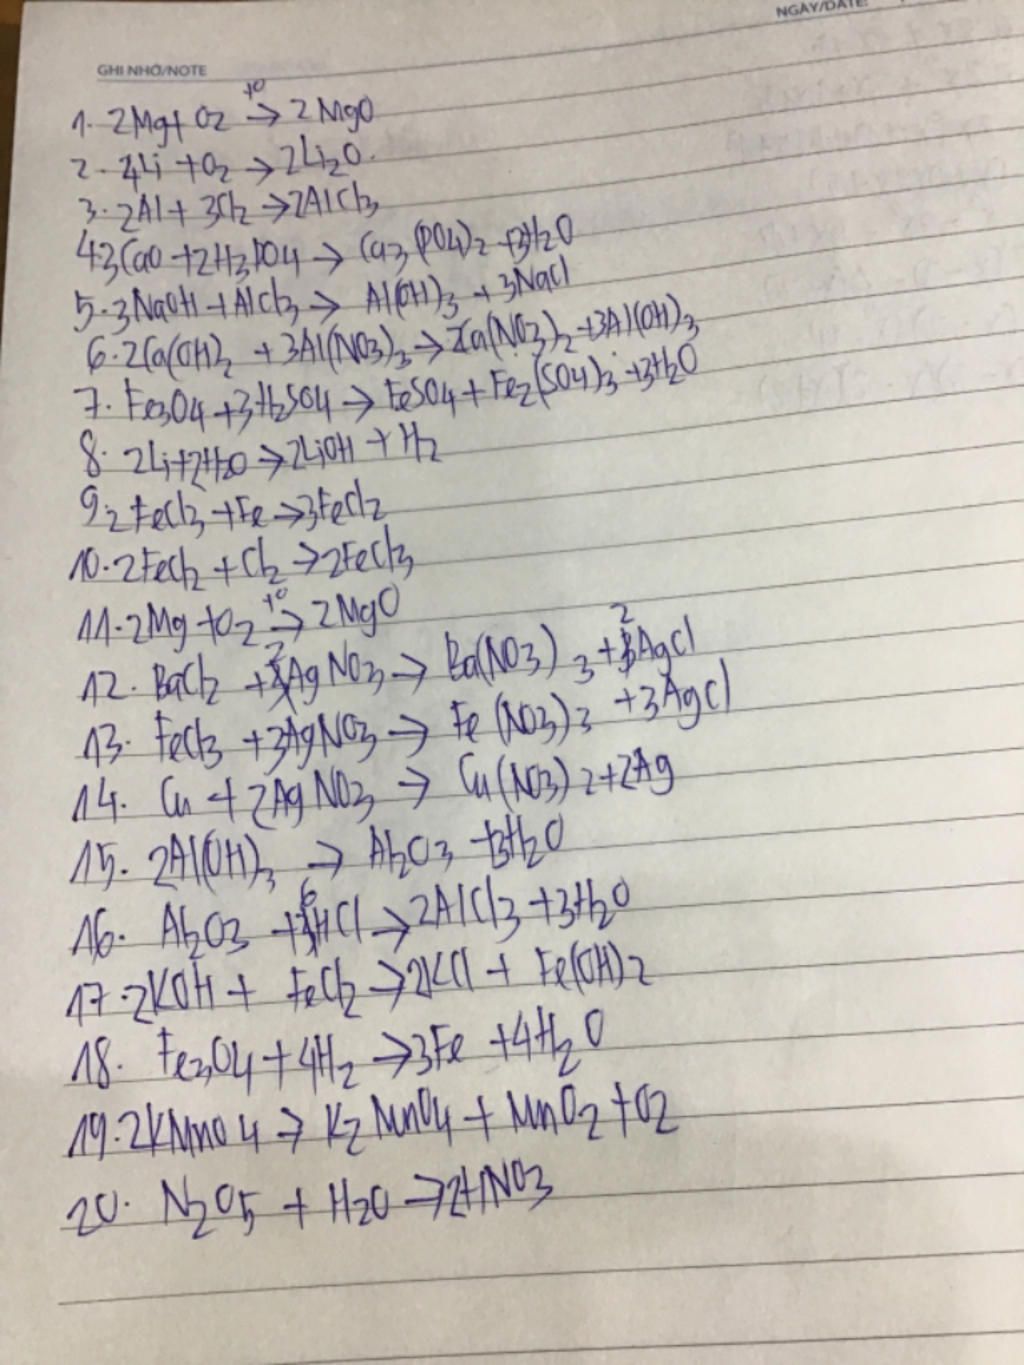 NGÀY/DATE:
GHI NHỚ/NOTE
1. 2Mg + O2 →t0 2MgO
2. 4Li + O2 → 2Li2O.
3. 2Al + 3Cl2 → 2AlCl3
4 3CaO + 2H3PO4 → Ca3(PO4)2 + 3H2O
5. 3NaOH + AlCl3 → Al(OH)3 + 3NaCl
6. 2Ca(OH)2 + 3Al(NO3)3 → Ca(NO3)2 + 3Al(OH)3
7. Fe3O4 + 3H2SO4 → FeSO4 + Fe2(SO4)3 + 3H2O
8. 2Li + 2H2O → 2LiOH + H2
9 2FeCl3 + Fe → 3FeCl2
10. 2FeCl2 + Cl2 → 2FeCl3
11. 2Mg + O2 →t0 2MgO
12. BaCl2 + 2AgNO3 → Ba(NO3)3 + 2AgCl
13. FeCl3 + 3AgNO3 → Fe(NO3)3 + 3AgCl
14. Cu + 2AgNO3 → Cu(NO3)2 + 2Ag
15. 2Al(OH)3 → Al2O3 + 3H2O
16. Al2O3 + 6HCl → 2AlCl3 + 3H2O
17. 2KOH + FeCl2 → 2KCl + Fe(OH)2
18. Fe3O4 + 4H2 → 3Fe + 4H2O
19. 2KMnO4 → K2MnO4 + MnO2 + O2
20. N2O5 + H2O → 2HNO3